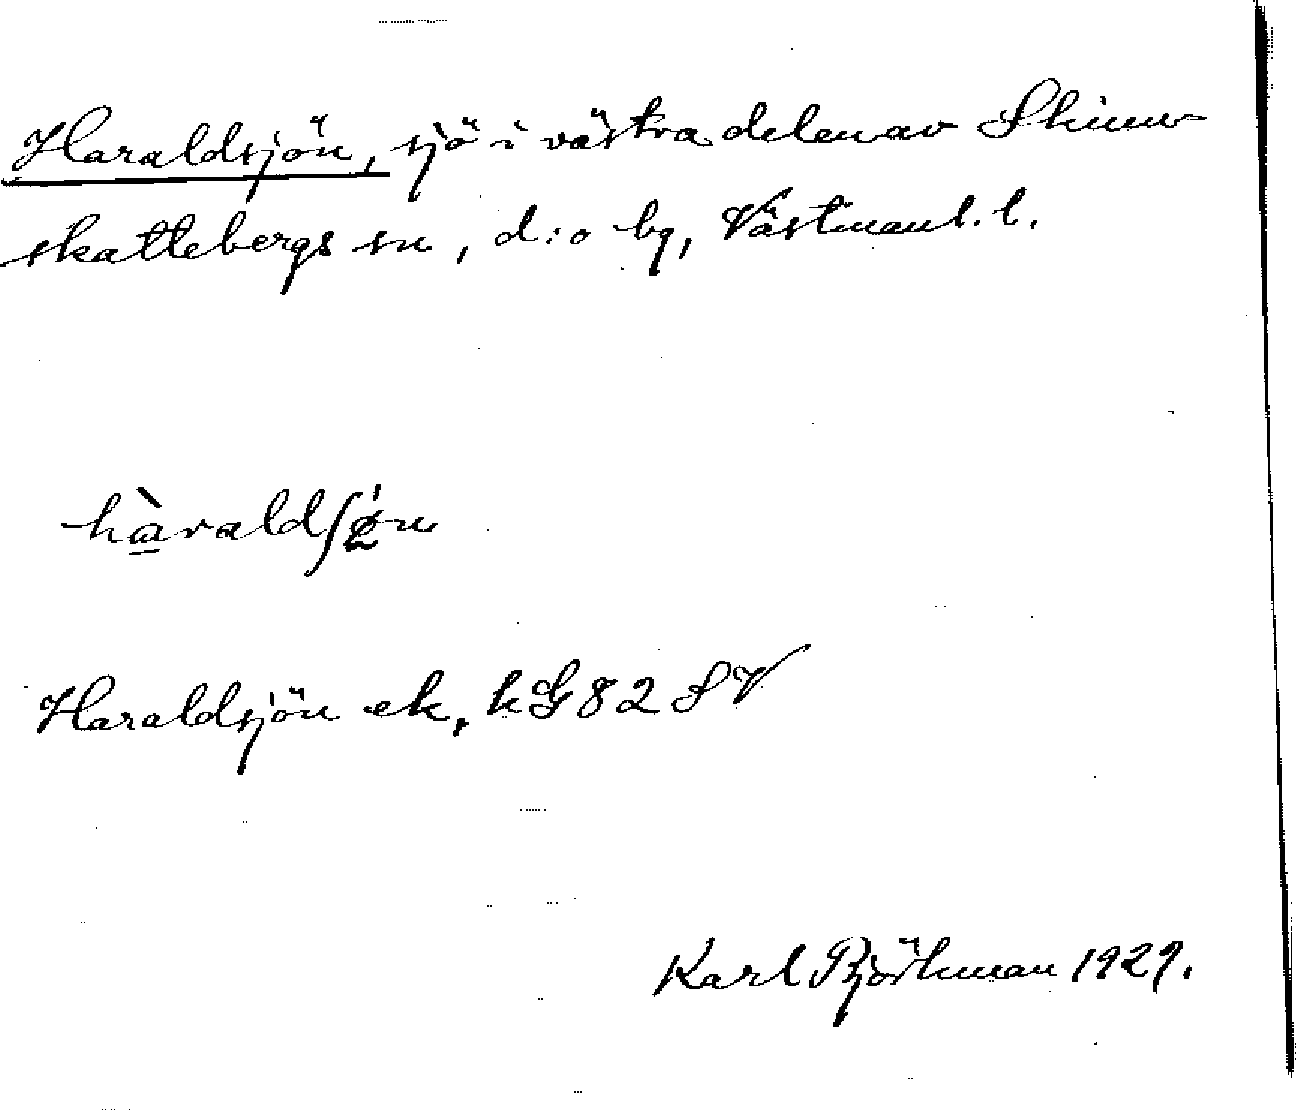 Haraldsjön, sjö i västra delen av Skinn-
skattebergs sn, d:o bg, Västmanl. l.
hàraldʃø̀n
Haraldsjön ek. kG 82 SV
Karl Björkman 1929.